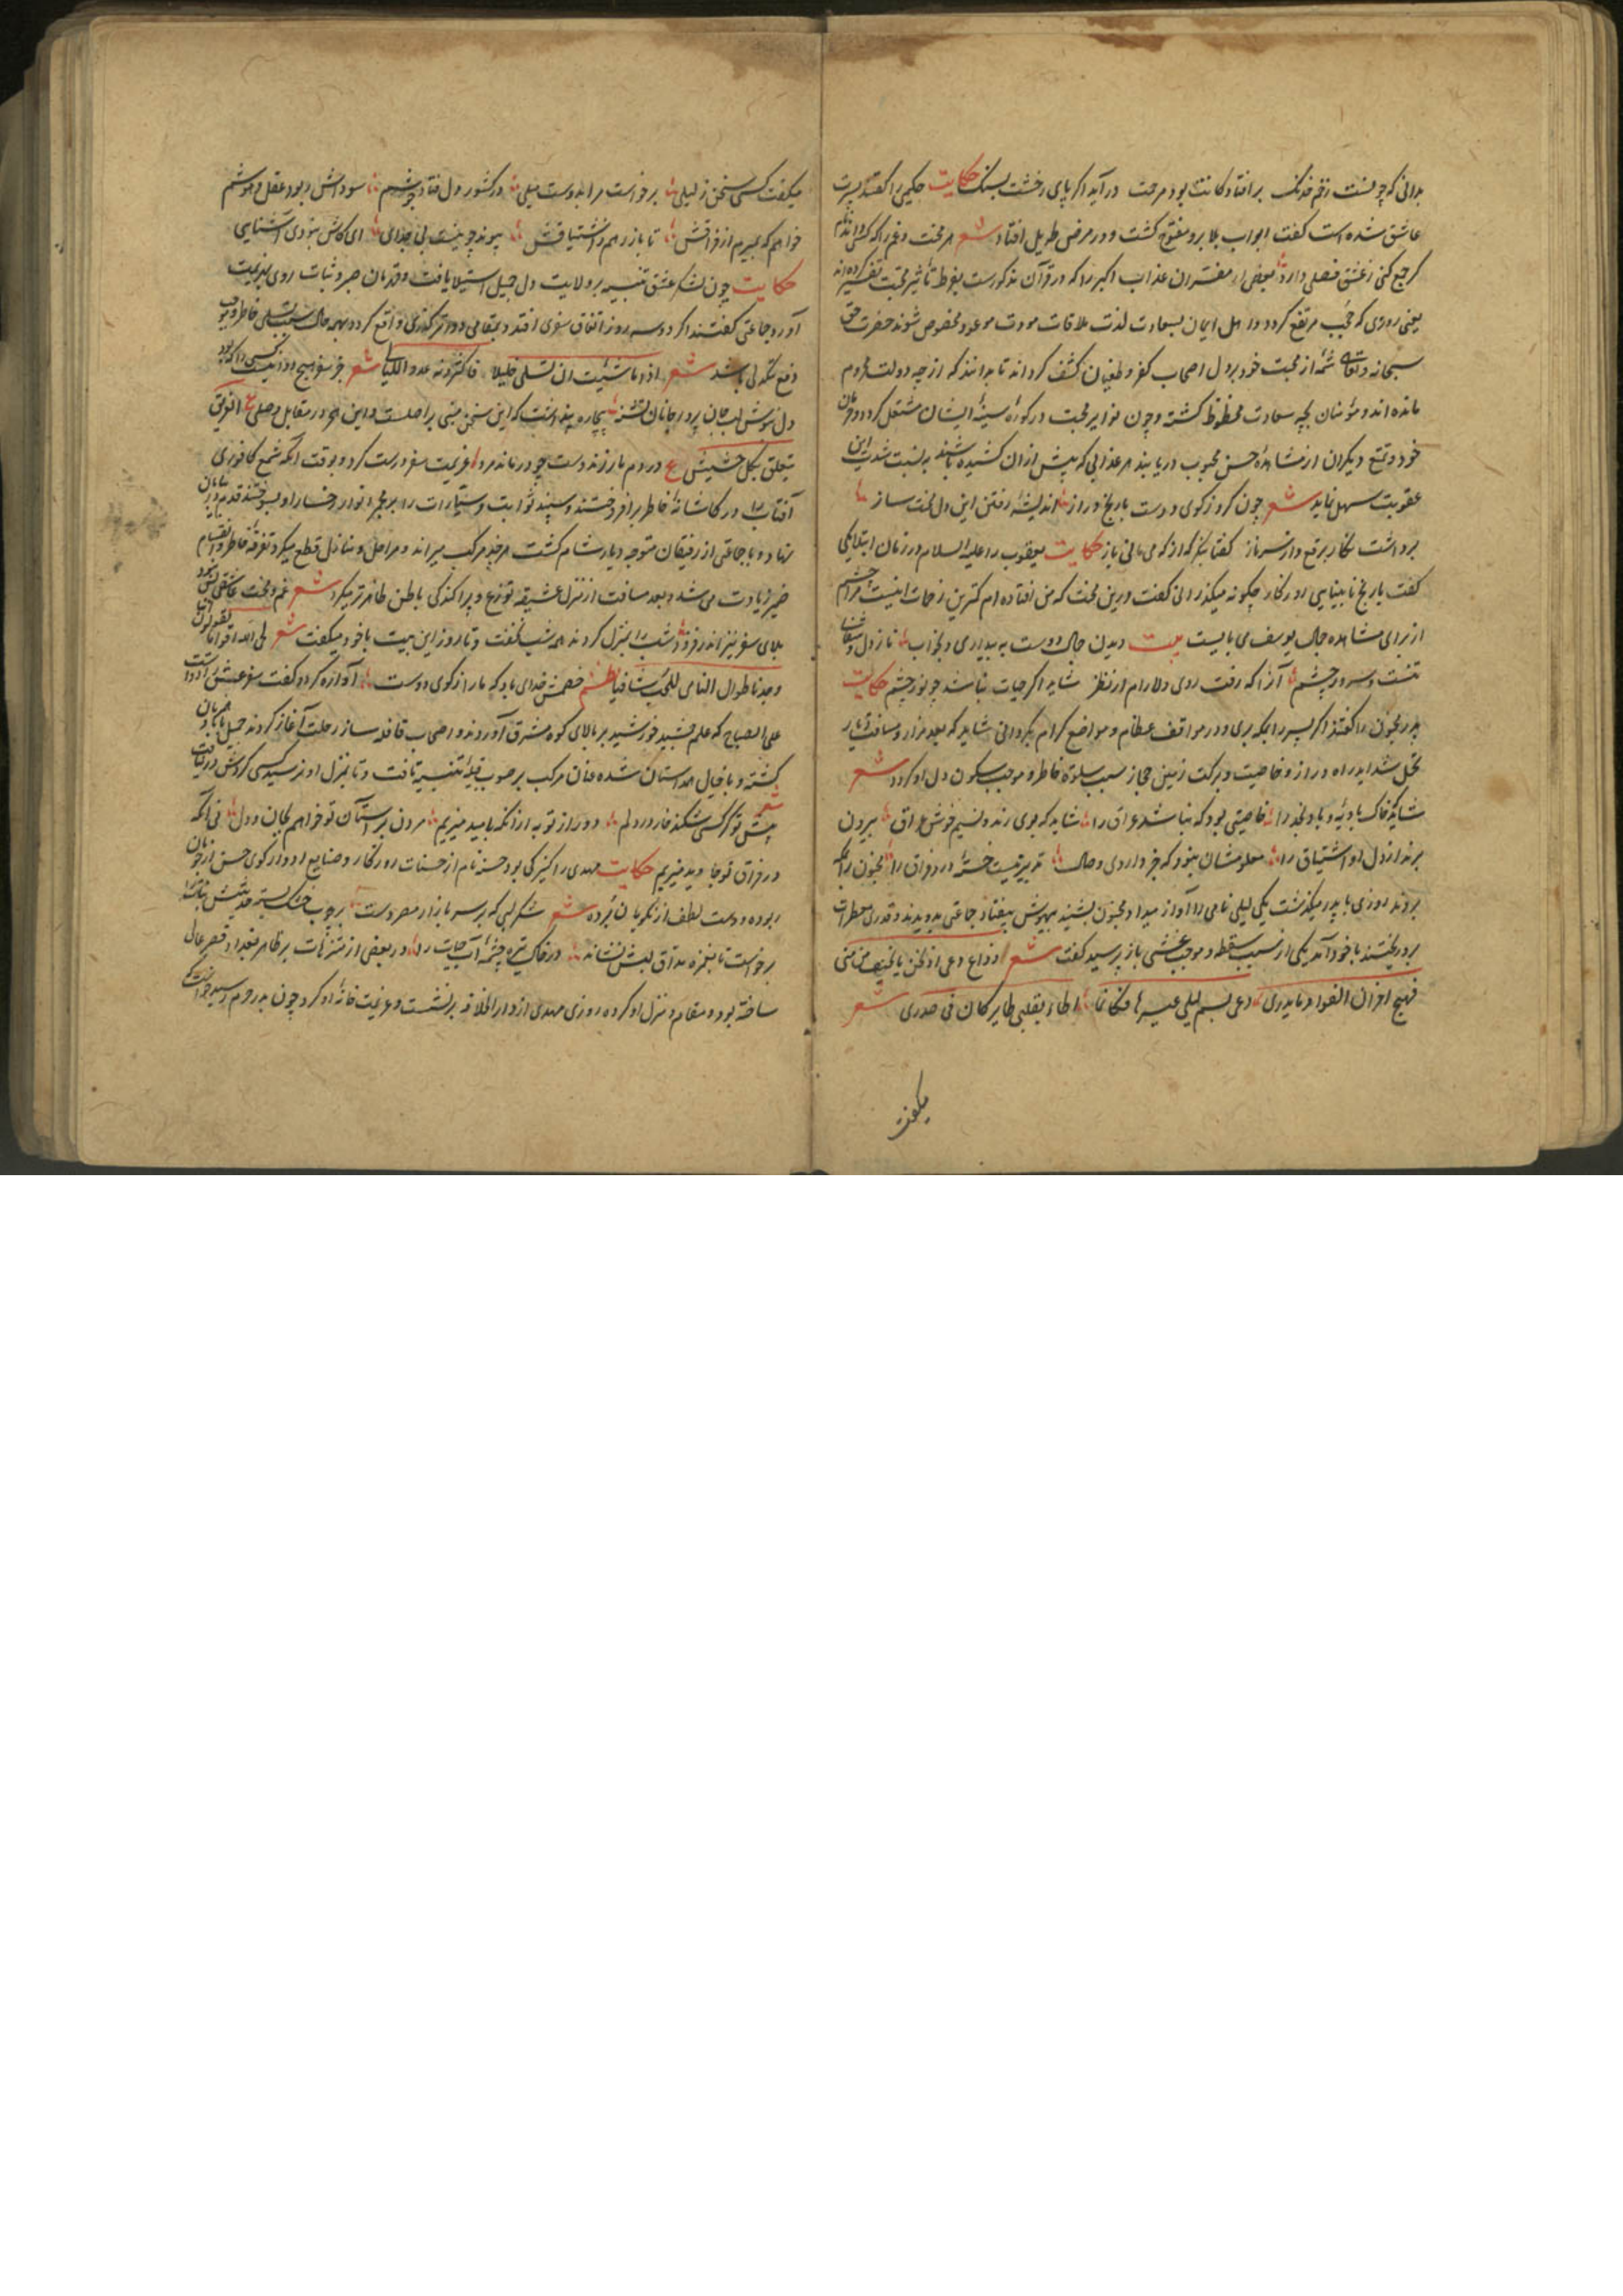 بدانی که چونست زخم خدنک بر افتادکانت بود مرحمت درآید اگر پای رخشت بسنک حکایت حکیمی را گفتند پسرت
عاشق شده است گفت ابواب بلا برو مفتوح گشت و در مرض طویل افتاد شعر هر محنت و غم را که کسی داند نام
گر جمع کنی ز عشق فصلی دارد بعضی از مفسران عذاب اکبر را که در قرآن مذکورست بفرط تأثیر محبت تفسیر کرده‌اند
یعنی روزی که حجب مرتفع گردد و اهل ایمان بسعادت لذت ملاقات مودت موعود مخصوص شوند حضرت حق
سبحانه و تعالی شمهٔ از محبت خود بر دل اصحاب کفر و طغیان کشف گرداند تا بدانند که از چه دولت محروم
مانده‌اند و مؤمنان بچه سعادت محظوظ گشته و چون نوایر محبت در کورهٔ سینهٔ ایشان مشتعل گردد و حرمان
خود و تمتع دیگران از مشاهدهٔ حسن محبوب دریابند هر عذابی که پیش ازان کشیده باشند بنسبت شدت این
عقوبت سهل نماید شعر چون کرد ز کوی دوست با رنج دراز اندیشهٔ رفتن این دل محنت ساز
برداشت نگار برقع و از سر ناز گفتا بنگر که از که می مانی باز حکایت یعقوب را علیه السلام در زمان ابتلا یکی
گفت با رنج نابینایی روزگار چگونه میگذرانی گفت درین محنت که من افتاده‌ام کمترین زحمات اینست مرا چشم
از برای مشاهده جمال یوسف می بایست بیت دیدن جمال دوست به بیداری و بخواب تا ز دل
نشست و سر در چشم آنرا که رفت روی دلارام از نظر شاید اگر حیات نباشد چو نور چشم حکایت
پدر مجنون را گفتند اگر پسر را بمکه بری و در مواقف عظام و مواضع کرام بگردانی شاید که بعد مزار و مسافت دیار
تحمل شداید راه دراز و خاصیت و برکت زمین حجاز سبب سلوة خاطر و موجب سکون دل او گردد شعر
شاید که خاک بادیه و باد نجد را خاصیتی بود که نباشد عراق را شاید که بوی رند و نسیم خوش عراق بیرون
برند از دل او اشتیاق را معلومشان نبود که جز داروی وصال تدبیر نیست خستهٔ درد فراق را مجنون را بمکه
بردند روزی با پدر میگذشت یکی لیلی نامی را آواز میداد مجنون بشنید بیهوش بیفتاد جماعتی بدویدند و قدری معطرات
برو ریختند با خود آمد یکی از سبب سقطه و موجب غشی باز پرسید گفت شعر و داع دعی اذ نحن بالخیف من منی
فهیج احزان الفؤاد و ما یدری دعی بسم لیلی غیرها فکانما اطار بقلبی طایرا کان فی صدری شعر
میکفت
میکفت کسی سخن ز لیلی برخواست مرا بدوست میلی در کشور دل فتاد جوشم سوداش ربود عقل و هوشم
خواهم که بمیرم از فراقش تا باز رهم ز اشتیاقش پیوند چو نیست بی جدایی ای کاش نبودی آشنایی
حکایت چون لشکر عشق تفسیر بر ولایت دل جمیل استیلا یافت و قهرمان صبر و ثبات روی بهزیمت
آورد جماعتی گفتند اگر دو سه روز اتفاق سفری افتد و بمقامی دورتر گذری واقع گردد بهمه حال سبب تسلی خاطر و موجب
دفع تنگدلی باشد شعر اذا ما شئت ان تسلی خلیلا فاکثر دونه عدد اللیالی شعر
دل سوش لب جان پرور جانان تشنه بیچاره پنداشت که این سخن مبنی بر اصلست و این هجر در مقابل وصلی ع الغریق
یتعلق بکل حشیش ع در دم مار زند دست چو در ماند مرد عزیمت سفر درست کرد و بوقت آنکه شمع کافوری
آفتاب را در کاشانهٔ خاطر برافروختند و سپند ثوابت و سیارات را بر مجمرهٔ نوار رخسار او بسوختند قدم در بیابان
نهاد و با جماعتی از رفیقان متوجه دیار شام گشت هر چند مرکب میراند و مراحل و منازل قطع میکرد تفرقهٔ خاطر و انقسام
ضمیر زیادت می شد و بعد مسافت از منزل عشیقه توزع و پراکندگی باطن ظاهرتر میکرد شعر غم و محنت عاشقی بس نبود
بلای سفر نیز اندر فزود شب را بمنزل کردند همه شب نخفت و تا روز این بیت با خود میگفت شعر لحی الله اقواما یقولون اننا
وجدنا طوال النای للحب شافیا نظم خصمش خدای باد که ما را ز کوی دوست آواره کرد و گفت سفر عشق را دواست
علی الصباح که علم جمشید خورشید بر بالای کوه مشرق آوردند و اصحاب قافله ساز رحلت آغاز کردند جمیل با همرهان
گشته و با خیال همداستان شده عنان مرکب بر صوب قبیله تفسیر تافت و تا بمنزل او نرسید کسی گردش در نیافت
شعر پیش تو گر کسی شکند خار در دلم دور از تو به از آنکه بامید میزیم مردن بر آستان تو خواهم بجان و دل نی آنکه
در فراق تو جاوید میزیم حکایت مهدی را کنیزکی بود حسنه نام از حسنات روزگار و صنایع ادوار گوی حسن از خوبان
ربوده و دست لطف از نکویان برده شعر شکر لبی که بر سر بازار مصر دست بر چوب خشک بسته مدیتش نبات را
برخواست تا بغمزه مذاق لبش نشاند در خاک تیره چشمهٔ آب حیات را و در بعضی از متنزهات بر ظاهر بغداد قصر عالی
ساخته بود و مقام و منزل او کرده روزی مهدی از دار الخلافه برنشست و عزیمت خانهٔ او کرد چون بدر حرم رسید